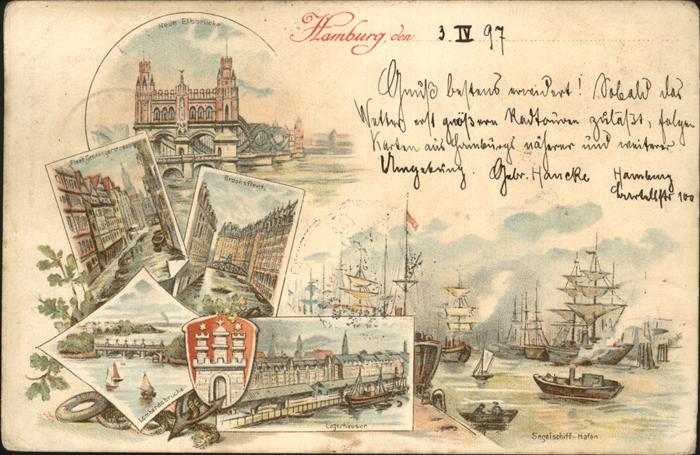 Neue Elbbrücke
Hamburg, den 3. IV 97
Gruß bestens erwidert! Sobald das
Wetter erst größere Radtouren zuläßt, folgen
Karten aus Hamburgs näherer und weiterer
Umgebung. Gebr. Hancke Hamburg
100
Brooksfleeth.
Lombardsbrücke
Lagerhäuser
Segelschiff-Hafen